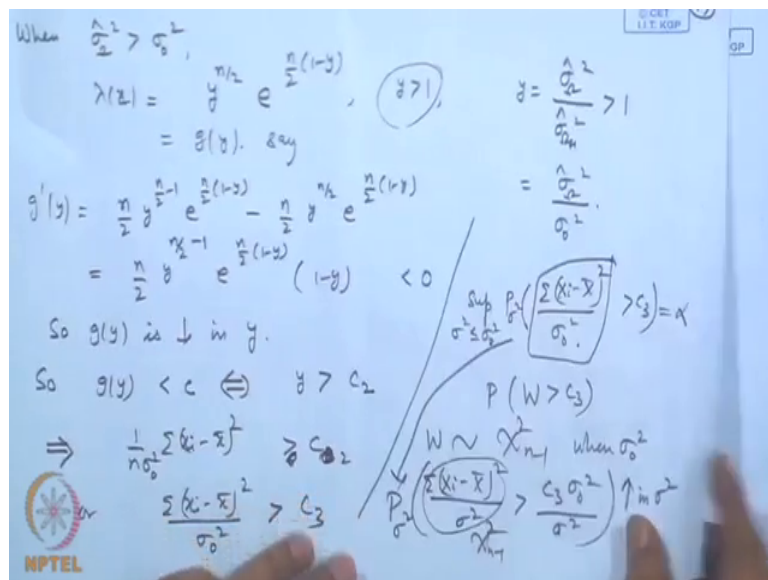 © CET
I.I.T. KGP
GP
When σ̂_Ω² > σ₀²,
λ(x) = y^{n/2} e^{n/2 (1-y)}, y > 1,
= g(y). say
g'(y) = n/2 y^{n/2 -1} e^{n/2 (1-y)} - n/2 y^{n/2} e^{n/2 (1-y)}
= n/2 y^{n/2 -1} e^{n/2 (1-y)} (1-y) < 0
So g(y) is ↓ in y.
So g(y) < c ⇔ y > c₂
⇒ 1/nσ₀² Σ(xi - x̄)² > c₂
or Σ(xi - x̄)² / σ₀² > c₃
y = σ̂_Ω² / σ̂_Ω_H² > 1
= σ̂_Ω² / σ₀².
Sup σ² ≤ σ₀² P_σ² ( Σ(Xi - X̄)² / σ₀² > c₃ ) = α
P(W > c₃)
W ~ χ²_{n-1} when σ₀²
P_σ² ( Σ(Xi - X̄)² / σ² > c₃ σ₀² / σ² ) ↑ in σ²
χ²_{n-1}
NPTEL